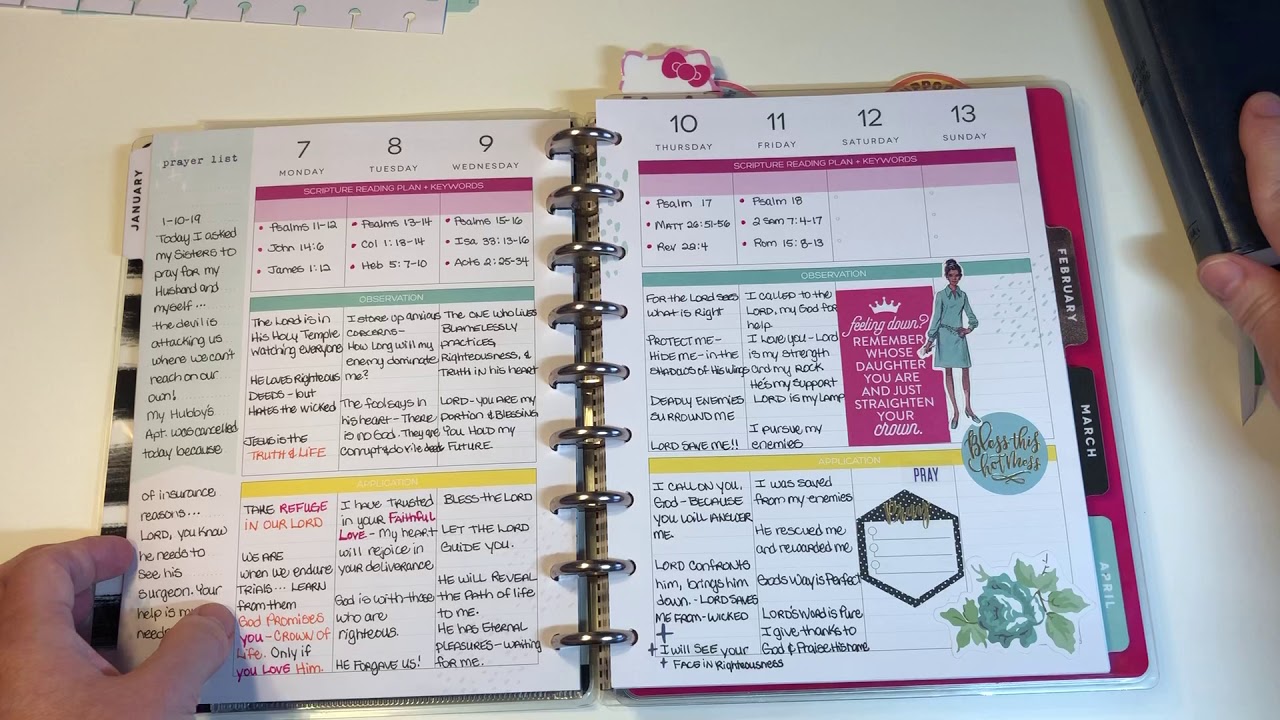 JANUARY
prayer list
1-10-19
Today I asked
my Sisters to
pray for my
Husband and
myself...
the devil is
attacking us
where we can't
reach on our
own!
My Hubby's
Apt. was cancelled
today because
of insurance
reasons...
LORD, you know
he needs to
see his
surgeon. Your
help is
need
7
MONDAY
8
TUESDAY
9
WEDNESDAY
SCRIPTURE READING PLAN + KEYWORDS
Psalms 11-12
John 14:6
James 1:12
Psalms 13-14
Col 1:18-14
Heb 5:7-10
Psalms 15-16
Isa 33:13-16
Acts 2:25-34
OBSERVATION
The LORD is in
His Holy Temple
watching everyone
HE LOVES Righteous
DEEDS - but
HATES the wicked
JESUS is the
TRUTH & LIFE
I store up anxious
concerns -
How long will my
enemy dominate
me?
The fool says in
his heart - There
is no God. They are
corrupt & do vile
The ONE who LIVES
BLAMELESSLY
PRACTICES,
Righteousness, &
TRUTH in his heart
LORD - YOU ARE my
PORTION & BLESSING
You HOLD my
FUTURE
APPLICATION
TAKE REFUGE
IN OUR LORD
WE ARE
when we endure
TRIALS... LEARN
from them
God Promises
you - CROWN OF
Life. Only if
you LOVE Him.
I have Trusted
in your Faithful
Love - My heart
will rejoice in
your deliverance
God is with those
who are
righteous.
HE FORGAVE US!
BLESS the LORD
LET THE LORD
GUIDE YOU.
HE WILL REVEAL
the PATH of life
to me.
HE HAS ETERNAL
PLEASURES - WAITING
for ME.
10
THURSDAY
11
FRIDAY
12
SATURDAY
13
SUNDAY
SCRIPTURE READING PLAN + KEYWORDS
Psalm 17
MATT 26:51-56
Rev 22:4
Psalm 18
2 Sam 7:4-17
Rom 15:8-13
OBSERVATION
FOR the LORD sees
what is Right
PROTECT ME -
HIDE ME - in the
SHADOWS OF His Wings
DEADLY ENEMIES
SURROUND ME
LORD SAVE ME!!
I CALLED to the
LORD, my God for
help.
I Love you - LORD
is my strength
and my ROCK
He's my support
LORD is my LAMP
I pursue my
enemies
feeling down?
REMEMBER
WHOSE
DAUGHTER
YOU ARE
AND JUST
STRAIGHTEN
YOUR
crown.
Bless this
hot mess
APPLICATION
I CALL ON YOU,
God - BECAUSE
YOU WILL ANSWER
ME.
LORD CONFRONTS
him, brings him
down. - LORD SAVES
ME FROM - WICKED
+
+ I will SEE your
+ FACE IN Righteousness
I was saved
from my enemies
He rescued me
and rewarded me
God's Way is Perfect
LORD'S WORD is Pure
I give thanks to
God & PRAISE His name
PRAY
FEBRUARY
MARCH
APRIL